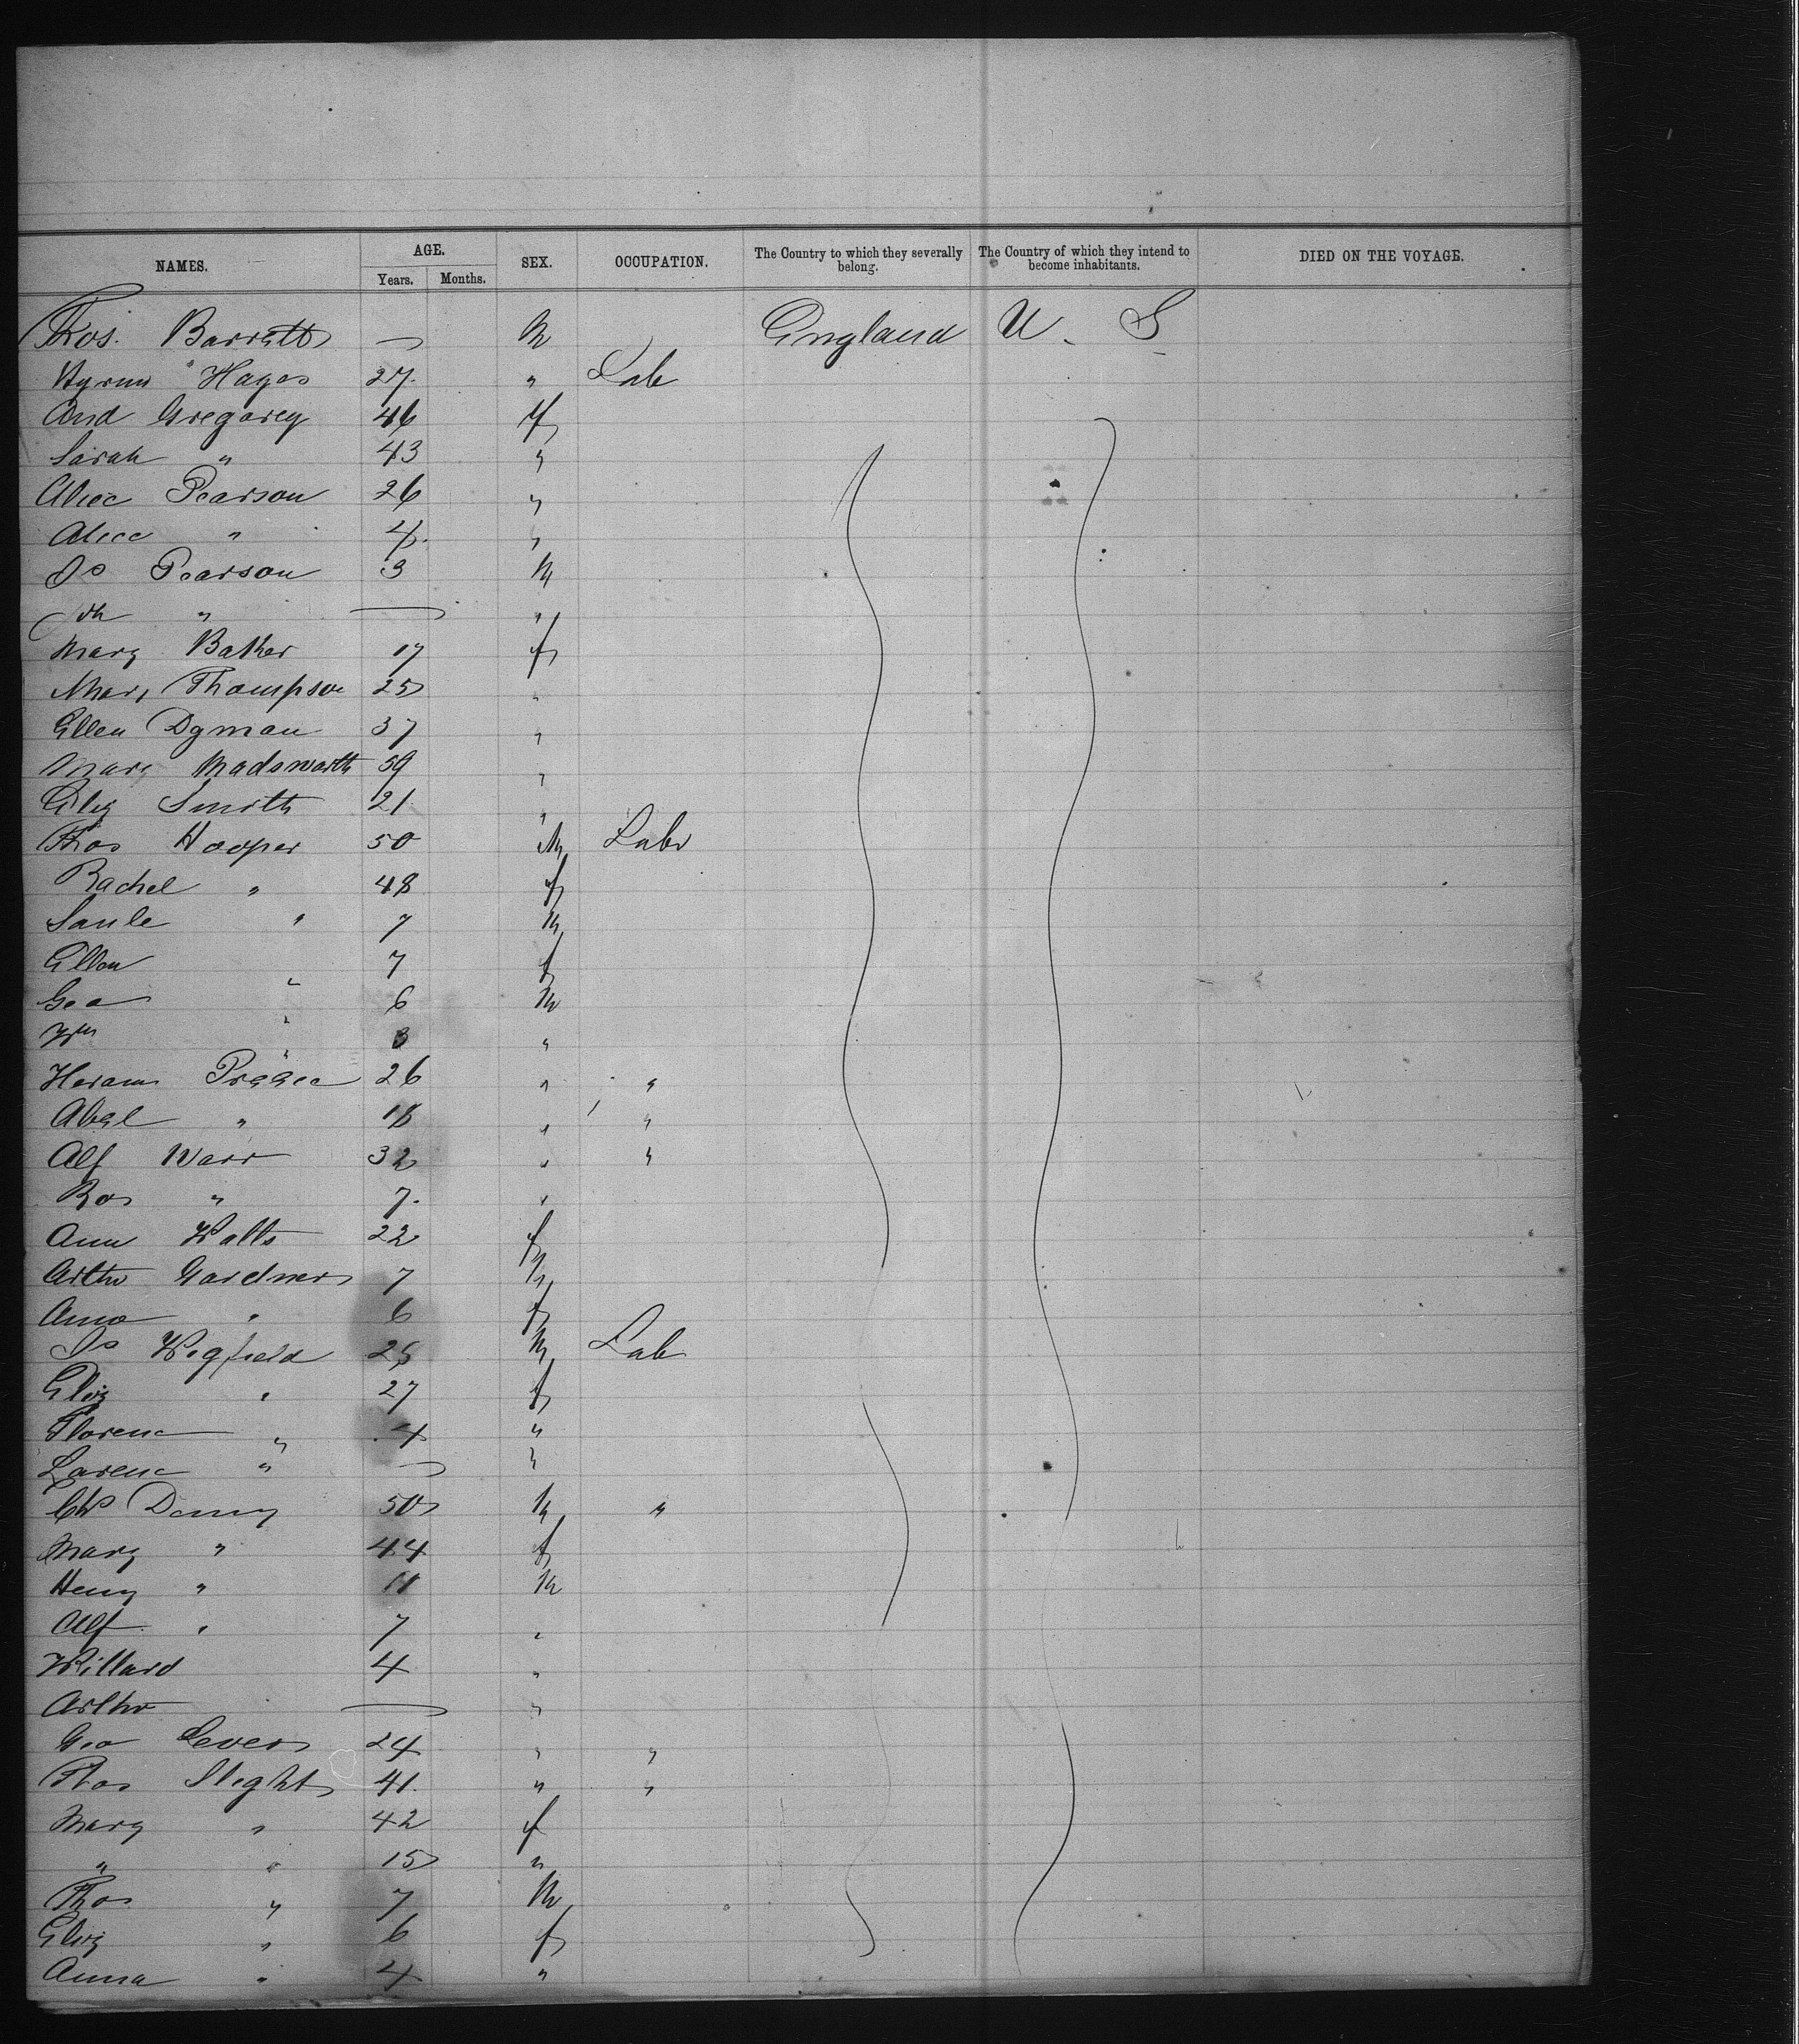 NAMES. AGE. Years. Months. SEX. OCCUPATION. The Country to which they severally belong. The Country of which they intend to become inhabitants. DIED ON THE VOYAGE.
Thos. Barratt — M England U. S
Hyrum Hages 27 " Lab
And Gregorey 46 f
Sarah " 43 "
Alice Pearson 26 "
Alice " 4 "
Js Pearson 3 M
" — "
Mary Baker 17 f
Mary Thompson 25 "
Ellen Dyman 37 "
Mary Madsworth 59 "
Eliz Smith 21 "
Thos Hooper 50 M Labr
Rachel " 48 f
" 7 M
Ellen " 7 f
Geo " 6 M
Wm " 3 "
Heram 26 " "
Abel " 18 " "
Alf Warr 32 " "
" 7 "
Ann Walls 22 f
Arthr Gardner 7 M
Anna " 6 f
Js Wigfield 25 M Lab
Eliz " 27 f
Florenc " 4 "
Larenc " — "
Chs Denny 50 M "
Mary " 44 f
Henry " 11 M
Alf " 7 "
Willard 4 "
Arthr — "
Geo Lever 24 " "
Thos Slight 41 " "
Mary " 42 f
" " 15 "
Thos " 7 M
Eliz " 6 f
Anna " 4 "